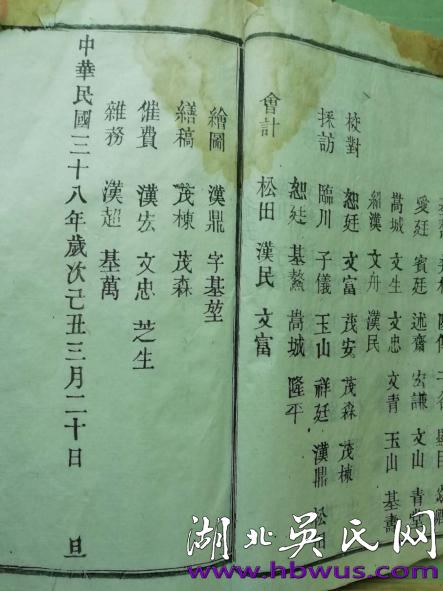 愛廷 賓廷 述齋 宏謙 文山 青堂
嵩城 文生 文忠 文青 玉山 基壽
紹漢 文舟 漢民
校對 恕廷 文富 茂安 茂森 茂棟
採訪 臨川 子儀 玉山 祥廷 漢鼎 松田
恕廷 基鰲 嵩城 隆平
會計 松田 漢民 文富
繪圖 漢鼎 字基堃
繕稿 茂棟 茂森
催費 漢宏 文忠 芝生
雜務 漢超 基萬
中華民國三十八年歲次己丑三月二十日 旦
湖北吴氏网
www.hbwus.com